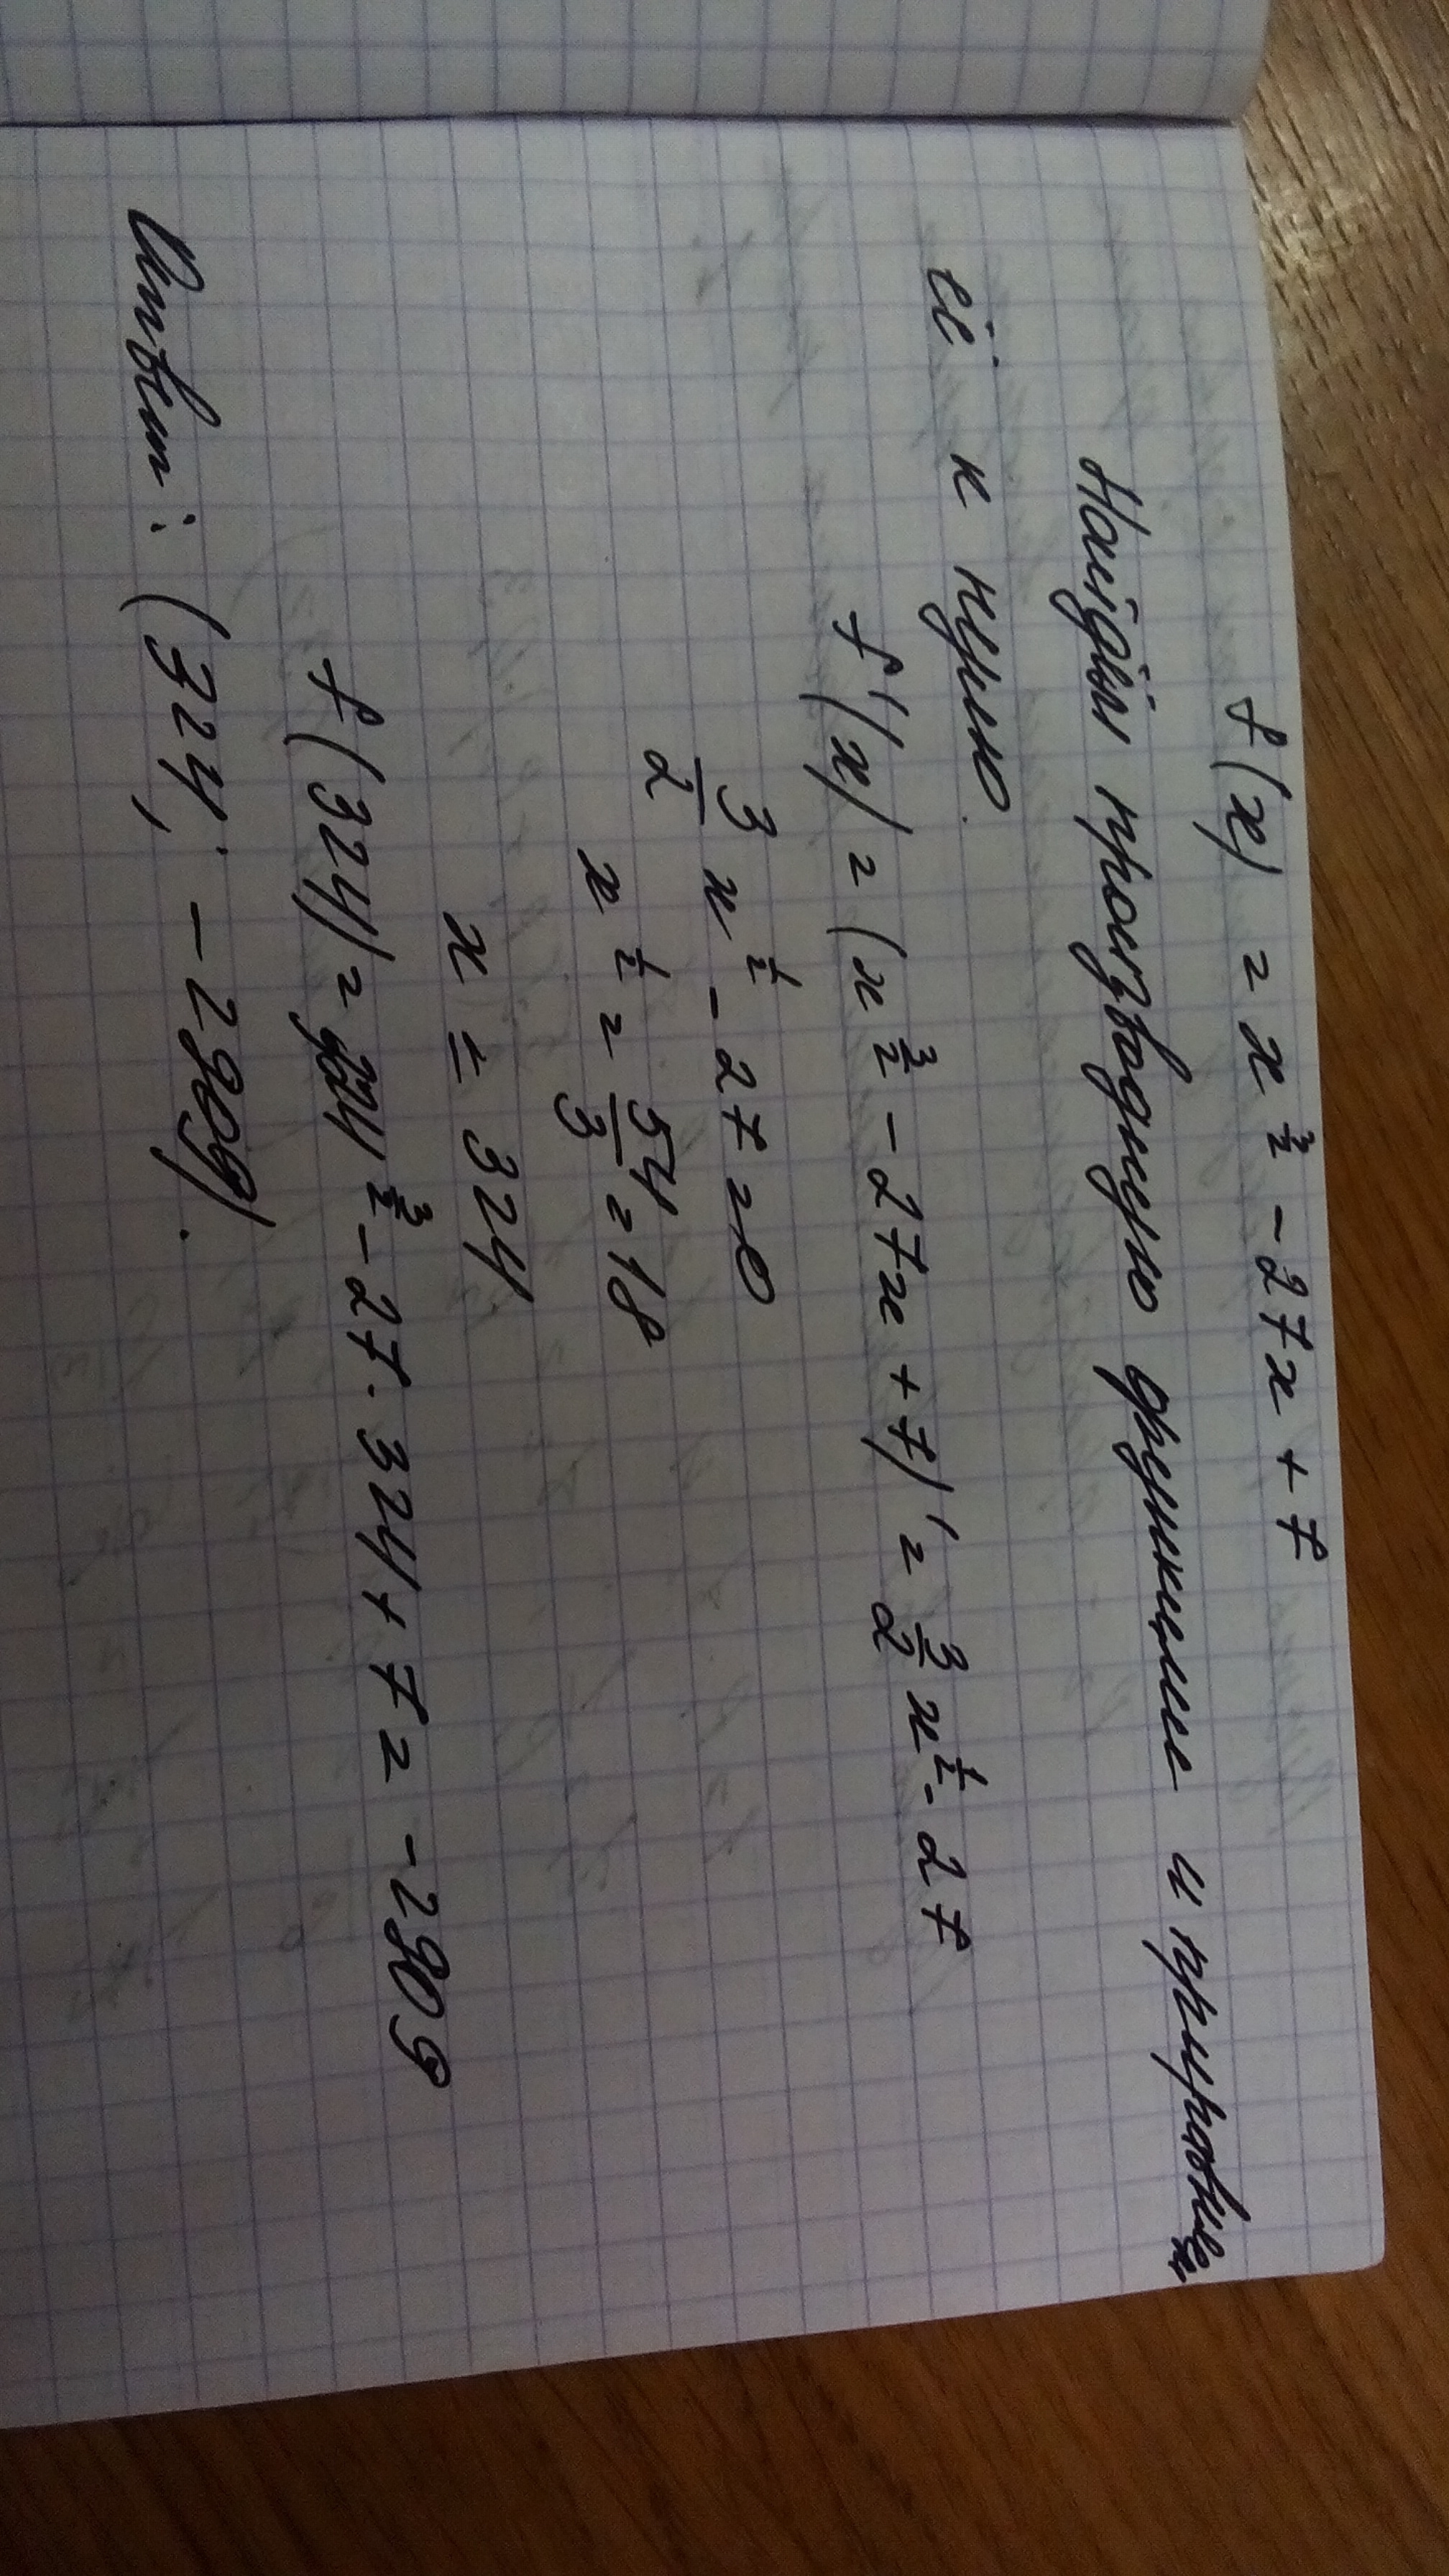 f(x) = x^(3/2) - 27x + 7
Найдём производную функции и приравняем
её к нулю.
f'(x) = (x^(3/2) - 27x + 7)' = 3/2 x^(1/2) - 27
3/2 x^(1/2) - 27 = 0
x^(1/2) = 54/3 = 18
x = 324
f(324) = 324^(3/2) - 27·324 + 7 = -2909
Ответ: (324; -2909).